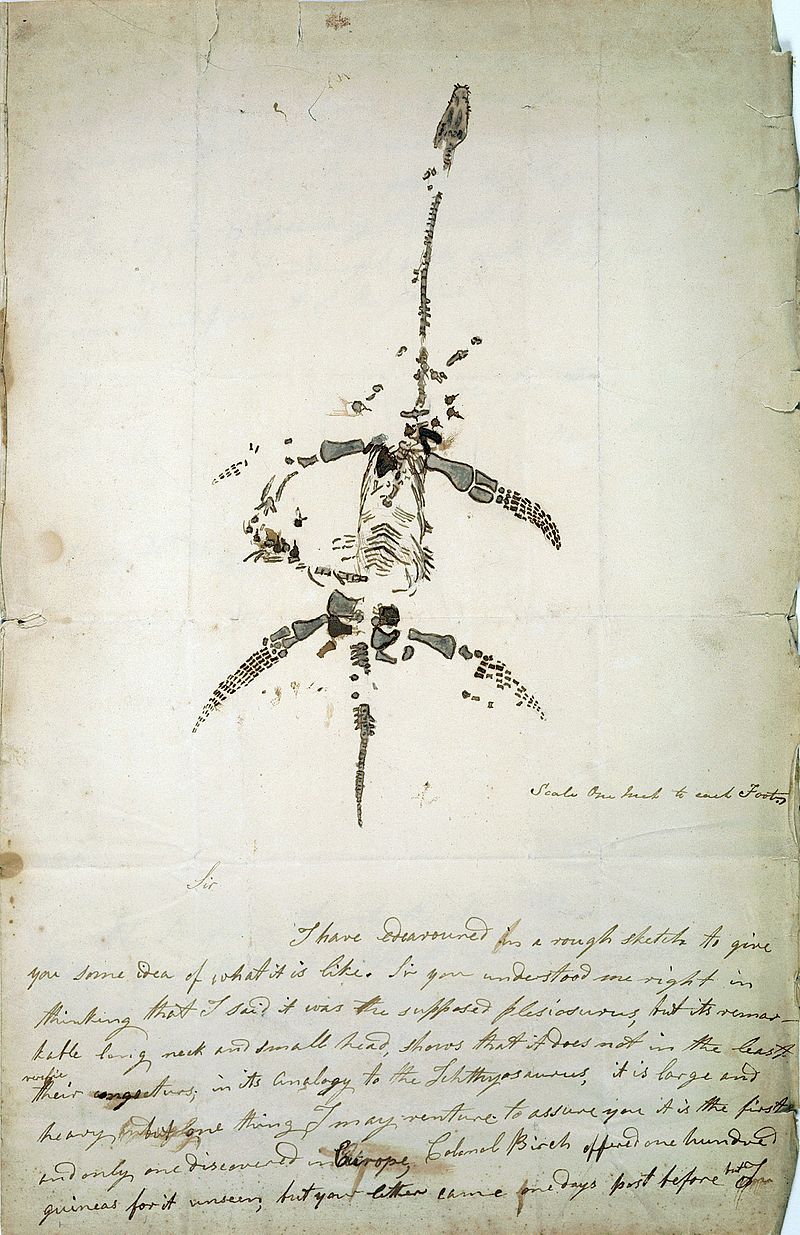 Scale One Inch to each Foot
Sir
I have edearoured in a rough sketch to give
you some idea of what it is like. Sir you understood me right in
thinking that I said it was the supposed plesiosurus, but its remar-
kable long neck and small head, shows that it does not in the least
verifie
their in its analogy to the Ichthyosaurus, it is large and
heavy but one thing I may venture to assure you it is the first
and only one discovered in Europe, Colonel Birch offered one hundred
guineas for it unseen, but your letter came one days post before